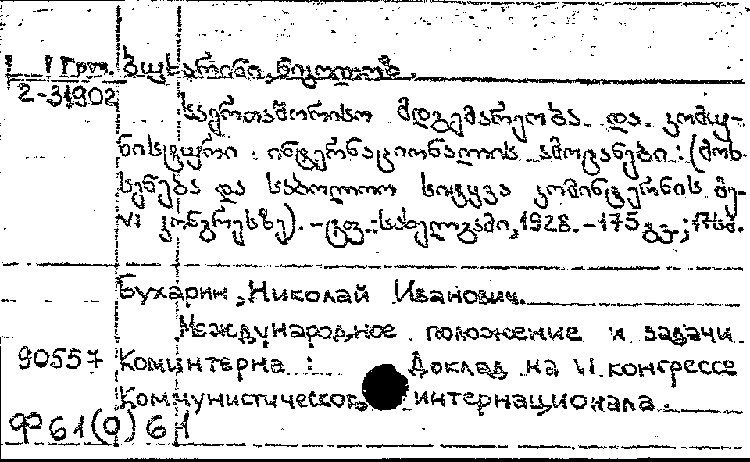 Груз. ბუხარინი, ნიკოლოზ.
2-31902
საერთაშორისო მდგომარეობა და კომუ-
ნისტური ინტერნაციონალის ამოცანები : (მოხ-
სენება და საბოლოო სიტყვა კომინტერნის მე-
VI კონგრესზე). - ტფ.: სახელგამი, 1928. - 175 გვ.; 17სმ.
Бухарин, Николай Иванович.
Международное положение и задачи
90557 Коминтерна : Доклад на VI конгрессе
Коммунистическог интернационала.
Ф61(9)61